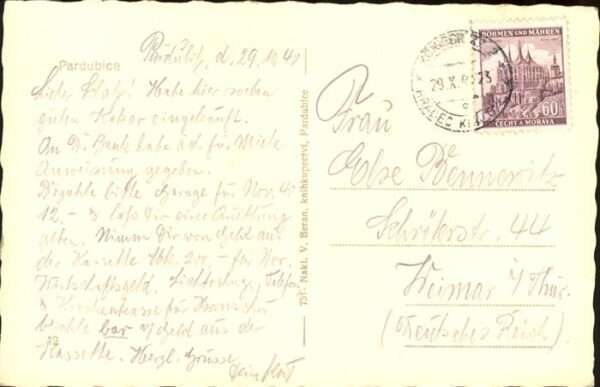 Pardubice
Pardubitz, d. 29.10.41
Lieber Schatz! Habe hier soeben
guten Kakao eingekauft.
An D. Bank habe ich für Miete
Anweisung gegeben.
Bezahle bitte Garage für Nov.
12,- & laß Dir eine Quittung
geben. Nimm Dir von Geld aus
der Kassette Mk. 200,- für Nov.
Wirtschaftsgeld. Lichtrechnung, Telefon
& Krankenkasse für
bezahle bar v/Geld aus der
Kassette. Herzl. Grüsse
Dein
751 Nakl. V. Beran, knihkupectví, Pardubice
BÖHMEN UND MÄHREN
60h
ČECHY A MORAVA
29.X.
Frau
Else Bennewitz
Schröterstr. 44
Weimar i/Thür.
(Deutsches Reich)